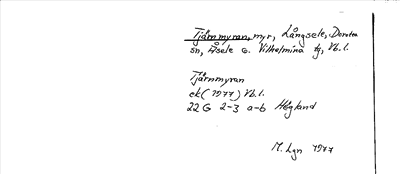 Tjärnmyran, myr, Långsele, Dorotea
sn, Åsele o. Vilhelmina tg, Vb. l.
Tjärnmyran
ek (1977) Vb. l.
22 G 2-3 a-b Högland
M. Lgn 1977